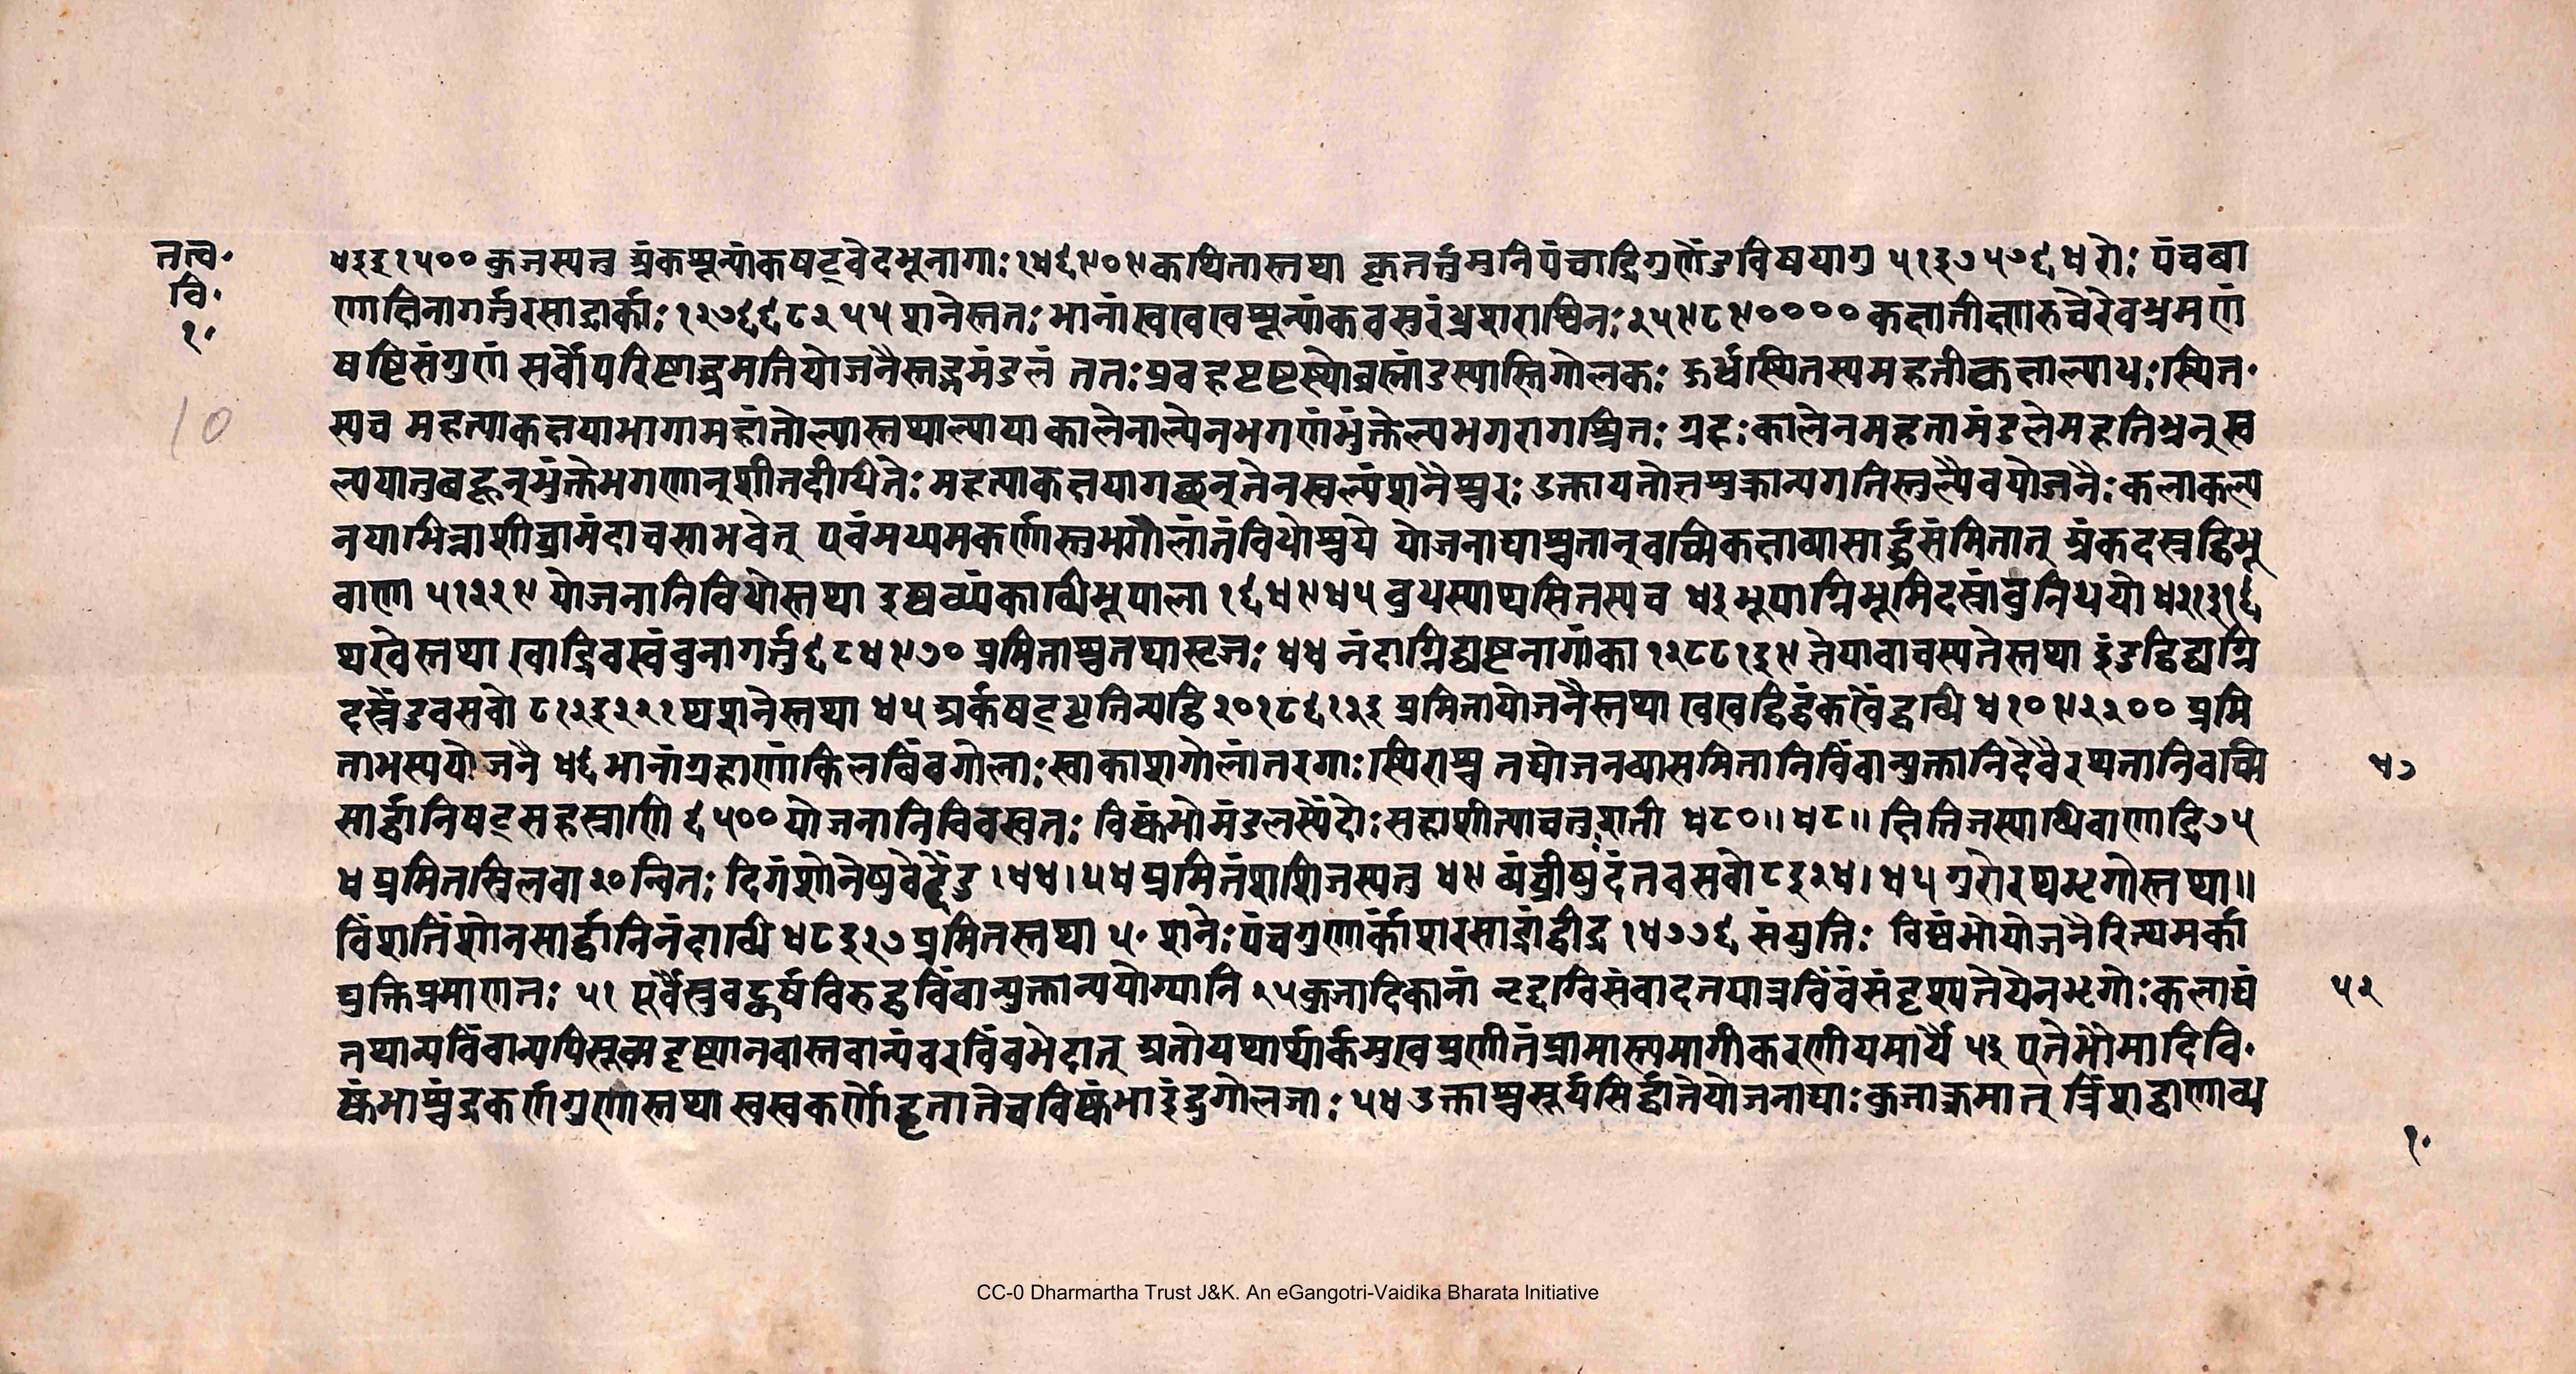 तत्व॰
वि॰
१॰
10
४३३१५०० कुजस्यतु अंकशून्यांकषट्वेदभूनागाः १४६९०९ कथितास्तथा कृतर्त्तुमुनिपंचाद्रिगुणेंडविषयागु ५१३७५७६४ रोः पंचबा
णाक्षिनागर्त्तुरसाद्र्यर्काः १२७६६८२५५ शनेस्ततः भानांखखखशून्यांकवसुरंध्रशराश्विनः २५९८९०००० कक्षातीक्ष्णरुचेरेवभ्रमणं
षष्टिसंगुणं सर्वोपरिष्टाद्भ्रमतियोजनैस्तद्भमंडलं ततः प्रवहपृष्टस्योब्रह्मांडस्यास्तिगोलकः ऊर्ध्वस्थितस्यमहतीकक्षाल्पाधः स्थित॰
स्यच महत्याकक्षयाभागामहांतोल्पास्तथाल्पया कालेनाल्पेनभगणंभुंक्तेल्पभगणाश्रितः ग्रहः कालेनमहतामंडलेमहतिभ्रमन् स्व
ल्पयातुबहून्भुंक्तेभगणान्शीतदीधितेः महत्याकक्षयागछन्ततःस्वल्पंशनैश्चरः उक्तायतोत्तशुक्रान्यगतिस्तुल्यैवयोजनैः कलाकल्प
नयाभिन्नाशीघ्रामंदाचसाभवेत् एवंमध्यमकर्णास्तुभगोलांतंविधोश्चये योजनाद्याश्चतान्वच्मिकक्षाव्यासार्द्धसंमितान् अंकदस्रद्विभू
वाणा ५१२२९ योजनानिविधोस्तथा इष्वब्ध्यंकाब्धिभूपाला १६४९४५ बुधस्याप्यसितस्यच ४३ भूपाग्निभूमिदस्रांबुनिधयो ४२१३१६
थरवेस्तथा खाद्रिवस्वंबुनागर्त्तु ६८४९७० प्रमिताश्चतथासृजः ४४ नंदाग्निद्यष्टनागांका १२८८१३९ ज्ञेयावाचस्पतेस्तथा इंडद्विद्यग्नि
दस्रेंडवसवो ८१२३२२१ थशनेस्तथा ४५ अर्कषट्धृतिन्यद्वि २०१८६१२३ प्रमितायोजनैस्तथा खखद्विद्व्यंकखेंद्वब्धि ४१०९२२०० प्रमि
ताभस्ययोजनै ४६ भानांग्रहाणांकिलबिंबगोलाः खाकाशगोलांतरगाः स्थिराश्च तद्योजनव्यासमितानिबिंबान्युक्तानिदेवैरथतानिवच्मि
४७
सार्द्धानिषट्सहस्राणि ६५०० योजनानिविवस्वतः विष्कंभोमंडलस्येंदोः सहाशीत्याचतुःशती ४८०॥ ४८॥ क्षितिजस्याब्धिवाणाद्रि ७५
४ प्रमितस्त्रिलवा २० न्वितः दिगंशोनेषुवेदेंडु १४४।५४ प्रमितंशशिजस्यतु ४९ व्यंघ्रीषुदंतवसवो ८३२४। ४५ गुरोरथभृगोस्तथा॥
विंशतिंशोनसार्द्धानिनंदाब्धि ४८३२७ प्रमितस्तथा ५॰ शनेः पंचगुणार्कांशरसाद्रांद्वीद्र १४७७६ संयुतिः विष्कंभोयोजनैरित्यमर्का
द्युक्तिप्रमाणतः ५१ पूर्वैस्तुवद्धर्षविरुद्धबिंबान्युक्तान्ययोग्यानि २५ कुजादिकानां नदृग्विसंवादतयात्रबिंबंसंदृश्यतेयेनभृगोः कलाद्यं
५२
तथान्यबिंबान्यपिसूक्ष्मदृष्ट्यानवास्तवान्यंबरबिंबभेदात् अतोयथार्थार्कमुखप्रणीतंप्रामाण्यमागीकरणीयमार्यै ५३ एतेभौमादिवि॰
ष्कंभाश्चंद्रकर्णगुणास्तथा स्वस्वकर्णोद्धृतातेचविष्कंभाइंदुगोलजाः ५४ उक्ताश्चसूर्यसिद्धांतेयोजनाद्याः कुजात्क्रमात् त्रिंशद्वाणाब्ध
१॰
CC-0 Dharmartha Trust J&K. An eGangotri-Vaidika Bharata Initiative